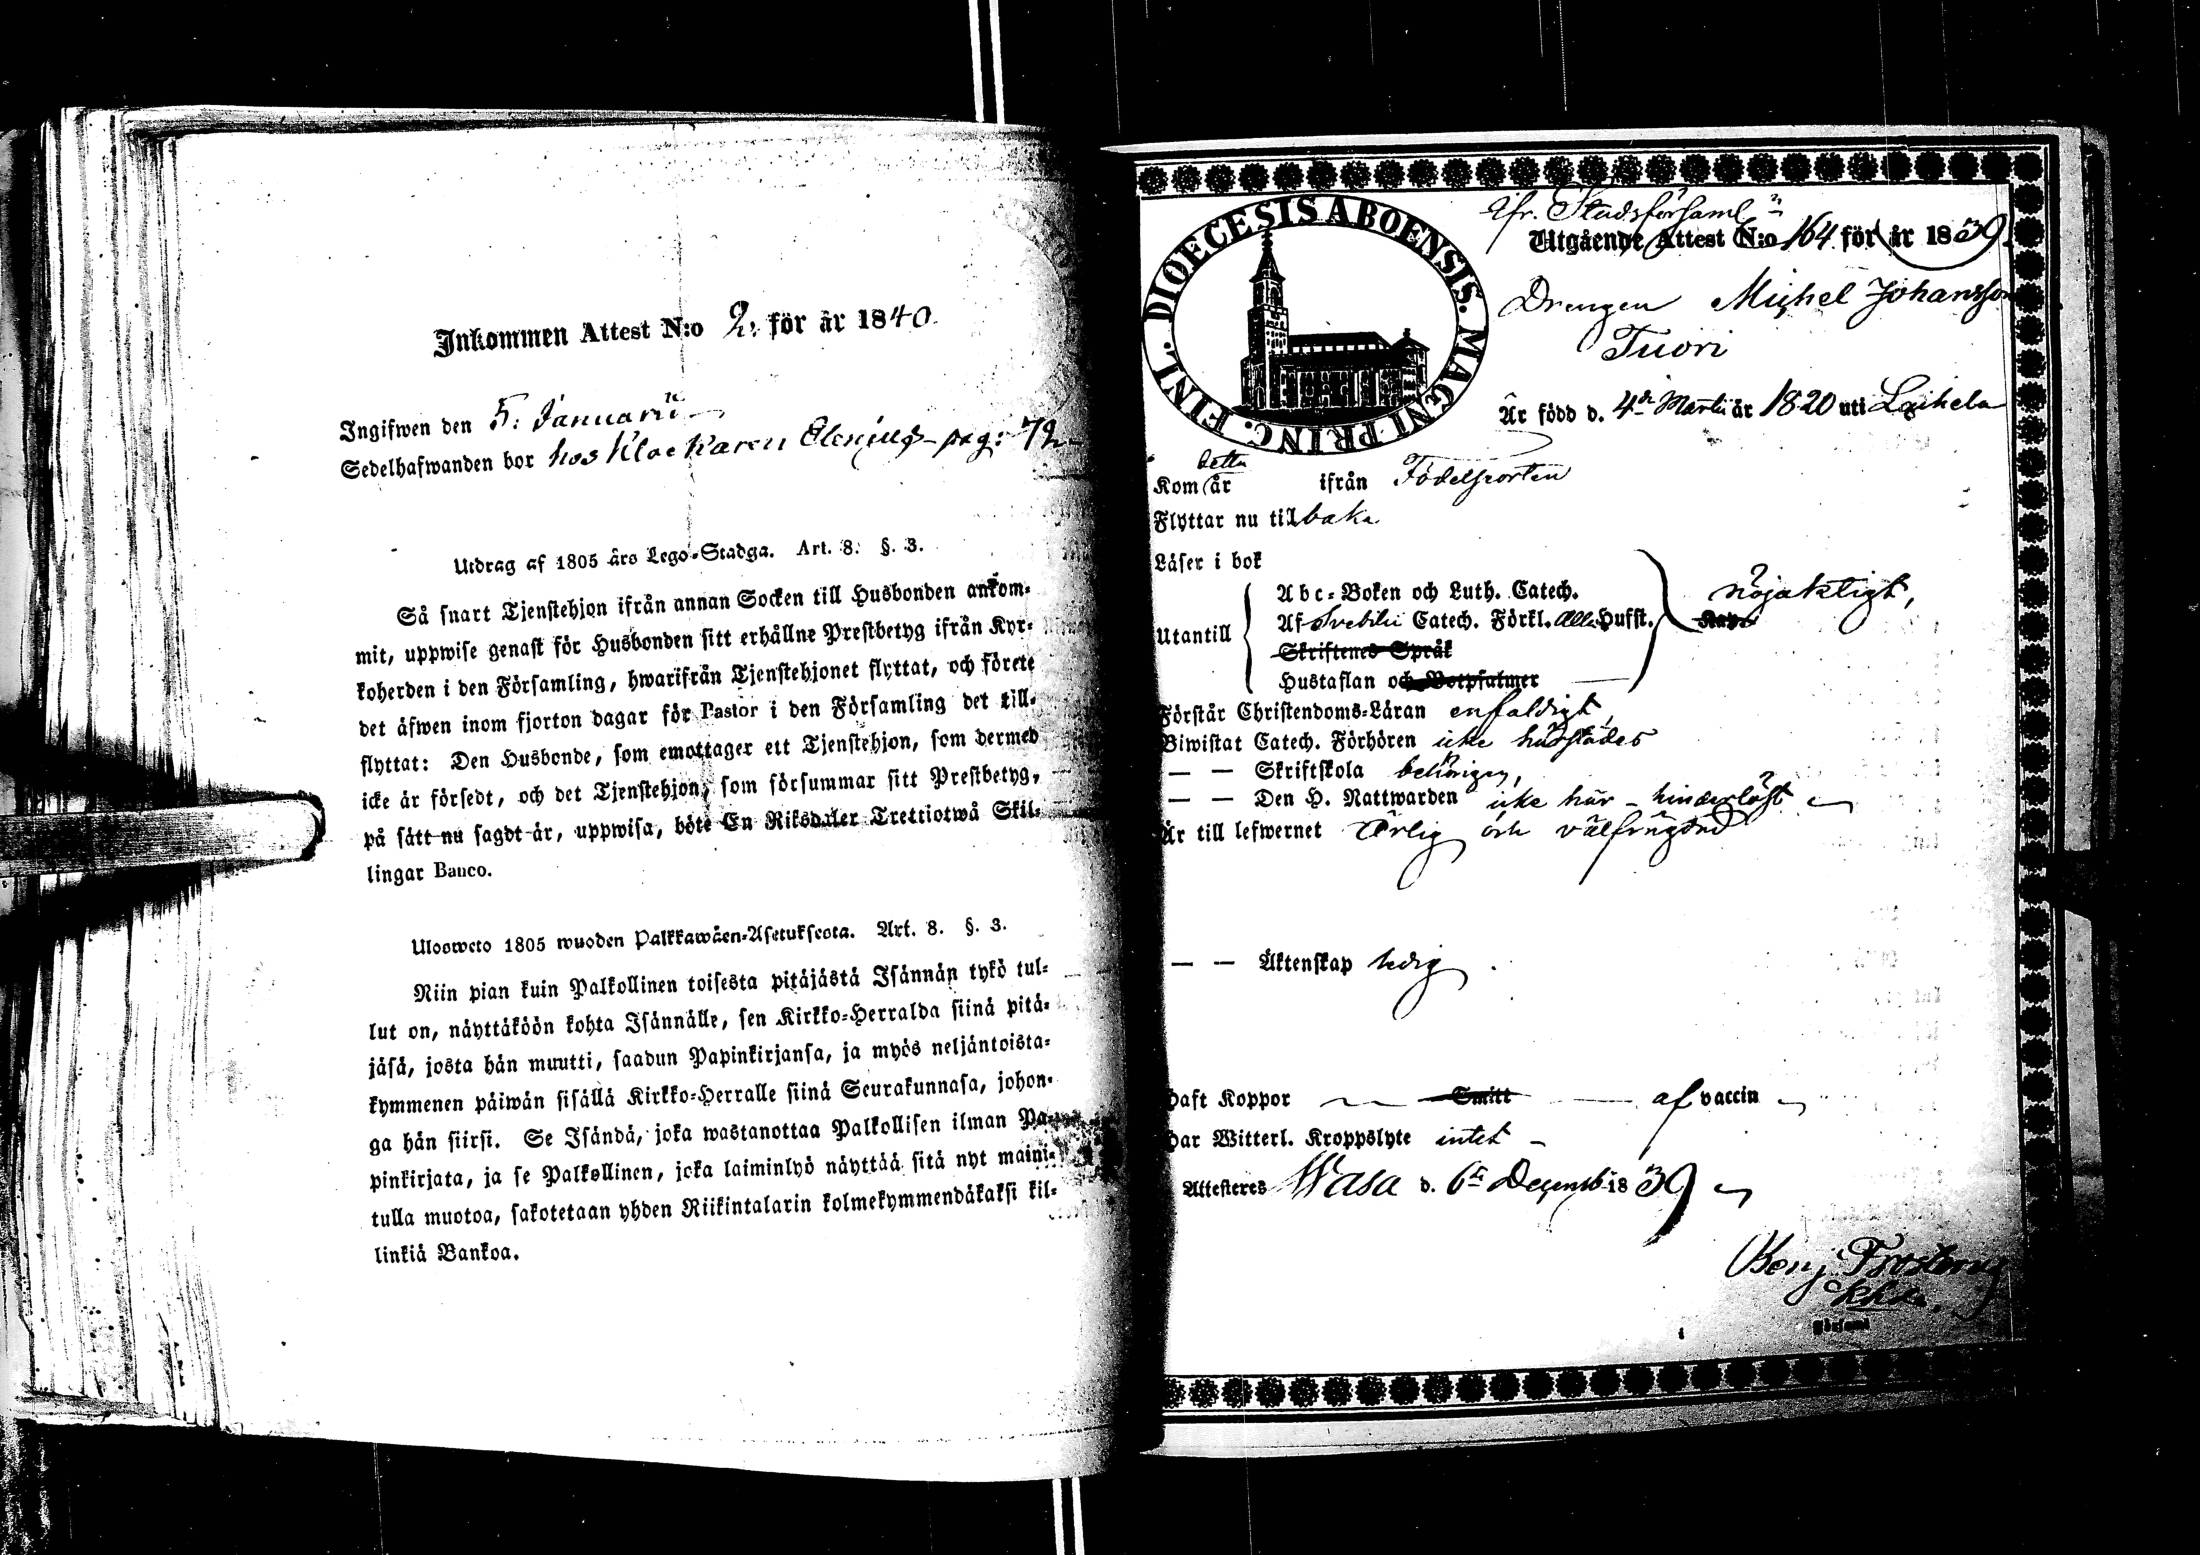 Inkommen Attest N:o 2. för år 1840.
Ingifwen den 5. Januarii
Sedelhafwanden bor hos Klockaren pag: 72
Utdrag af 1805 års Lego-Stadga. Art. 8. §. 3.
Så snart Tjenstehjon ifrån annan Socken till Husbonden ankom-
mit, uppwise genast för Husbonden sitt erhållne Prestbetyg ifrån Kyr-
koherden i den Församling, hwarifrån Tjenstehjonet flyttat, och förete
det äfwen inom fjorton dagar för Pastor i den Församling det till-
flyttat: Den Husbonde, som emottager ett Tjenstehjon, som dermed
icke är försedt, och det Tjenstehjon, som försummar sitt Prestbetyg,
på sätt nu sagdt är, uppwisa, böte En Riksdaler Trettiotwå Skil-
lingar Banco.
Ulosweto 1805 wuoden Palkkawäen-Asetuksesta. Art. 8. §. 3.
Niin pian kuin Palkollinen toisesta pitäjästä Isännän tykö tul-
lut on, näyttäköön kohta Isännälle, sen Kirkko-Herralda siinä pitä-
jäsä, josta hän muutti, saadun Papinkirjansa, ja myös neljäntoista-
kymmenen päiwän sisällä Kirkko-Herralle siinä Seurakunnasa, johon-
ga hän siirsi. Se Isändä, joka wastanottaa Palkollisen ilman Pa-
pinkirjata, ja se Palkollinen, joka laiminlyö näyttää sitä nyt maini-
tulla muotoa, sakotetaan yhden Riikintalarin kolmekymmendäkaksi kil-
linkiä Bankoa.
DIOECESIS ABOENSIS. MAGNI PRINC. FINL.
fr. Stadsförsaml
Utgående Attest N:o 164 för år 1839.
Drengen Michel Johansson
Tuori
Är född d. 4de Martii år 1820 uti Laihela
Kom detta år ifrån Födelseorten
Flyttar nu tilbaka
Läser i bok
Abc-Boken och Luth. Catech. nöjaktigt,
Utantill Af Svebilii Catech. Förkl. alla Hufst.
Skriftenes Språk
Hustaflan och Botpsalmer
Förstår Christendoms-Läran enfaldigt,
Biwistat Catech. Förhören icke härstädes
— — Skriftskola behörigen,
— — Den H. Nattwarden icke här - hinderlöst
Är till lefwernet Ärlig och välfrägdad
— — Äktenskap ledig.
Haft Koppor Smitt af vaccin
Har Witterl. Kroppslyte intet
Attesteres Wasa d. 6te Decemb. 1839
Benj. Frosterus
Församl